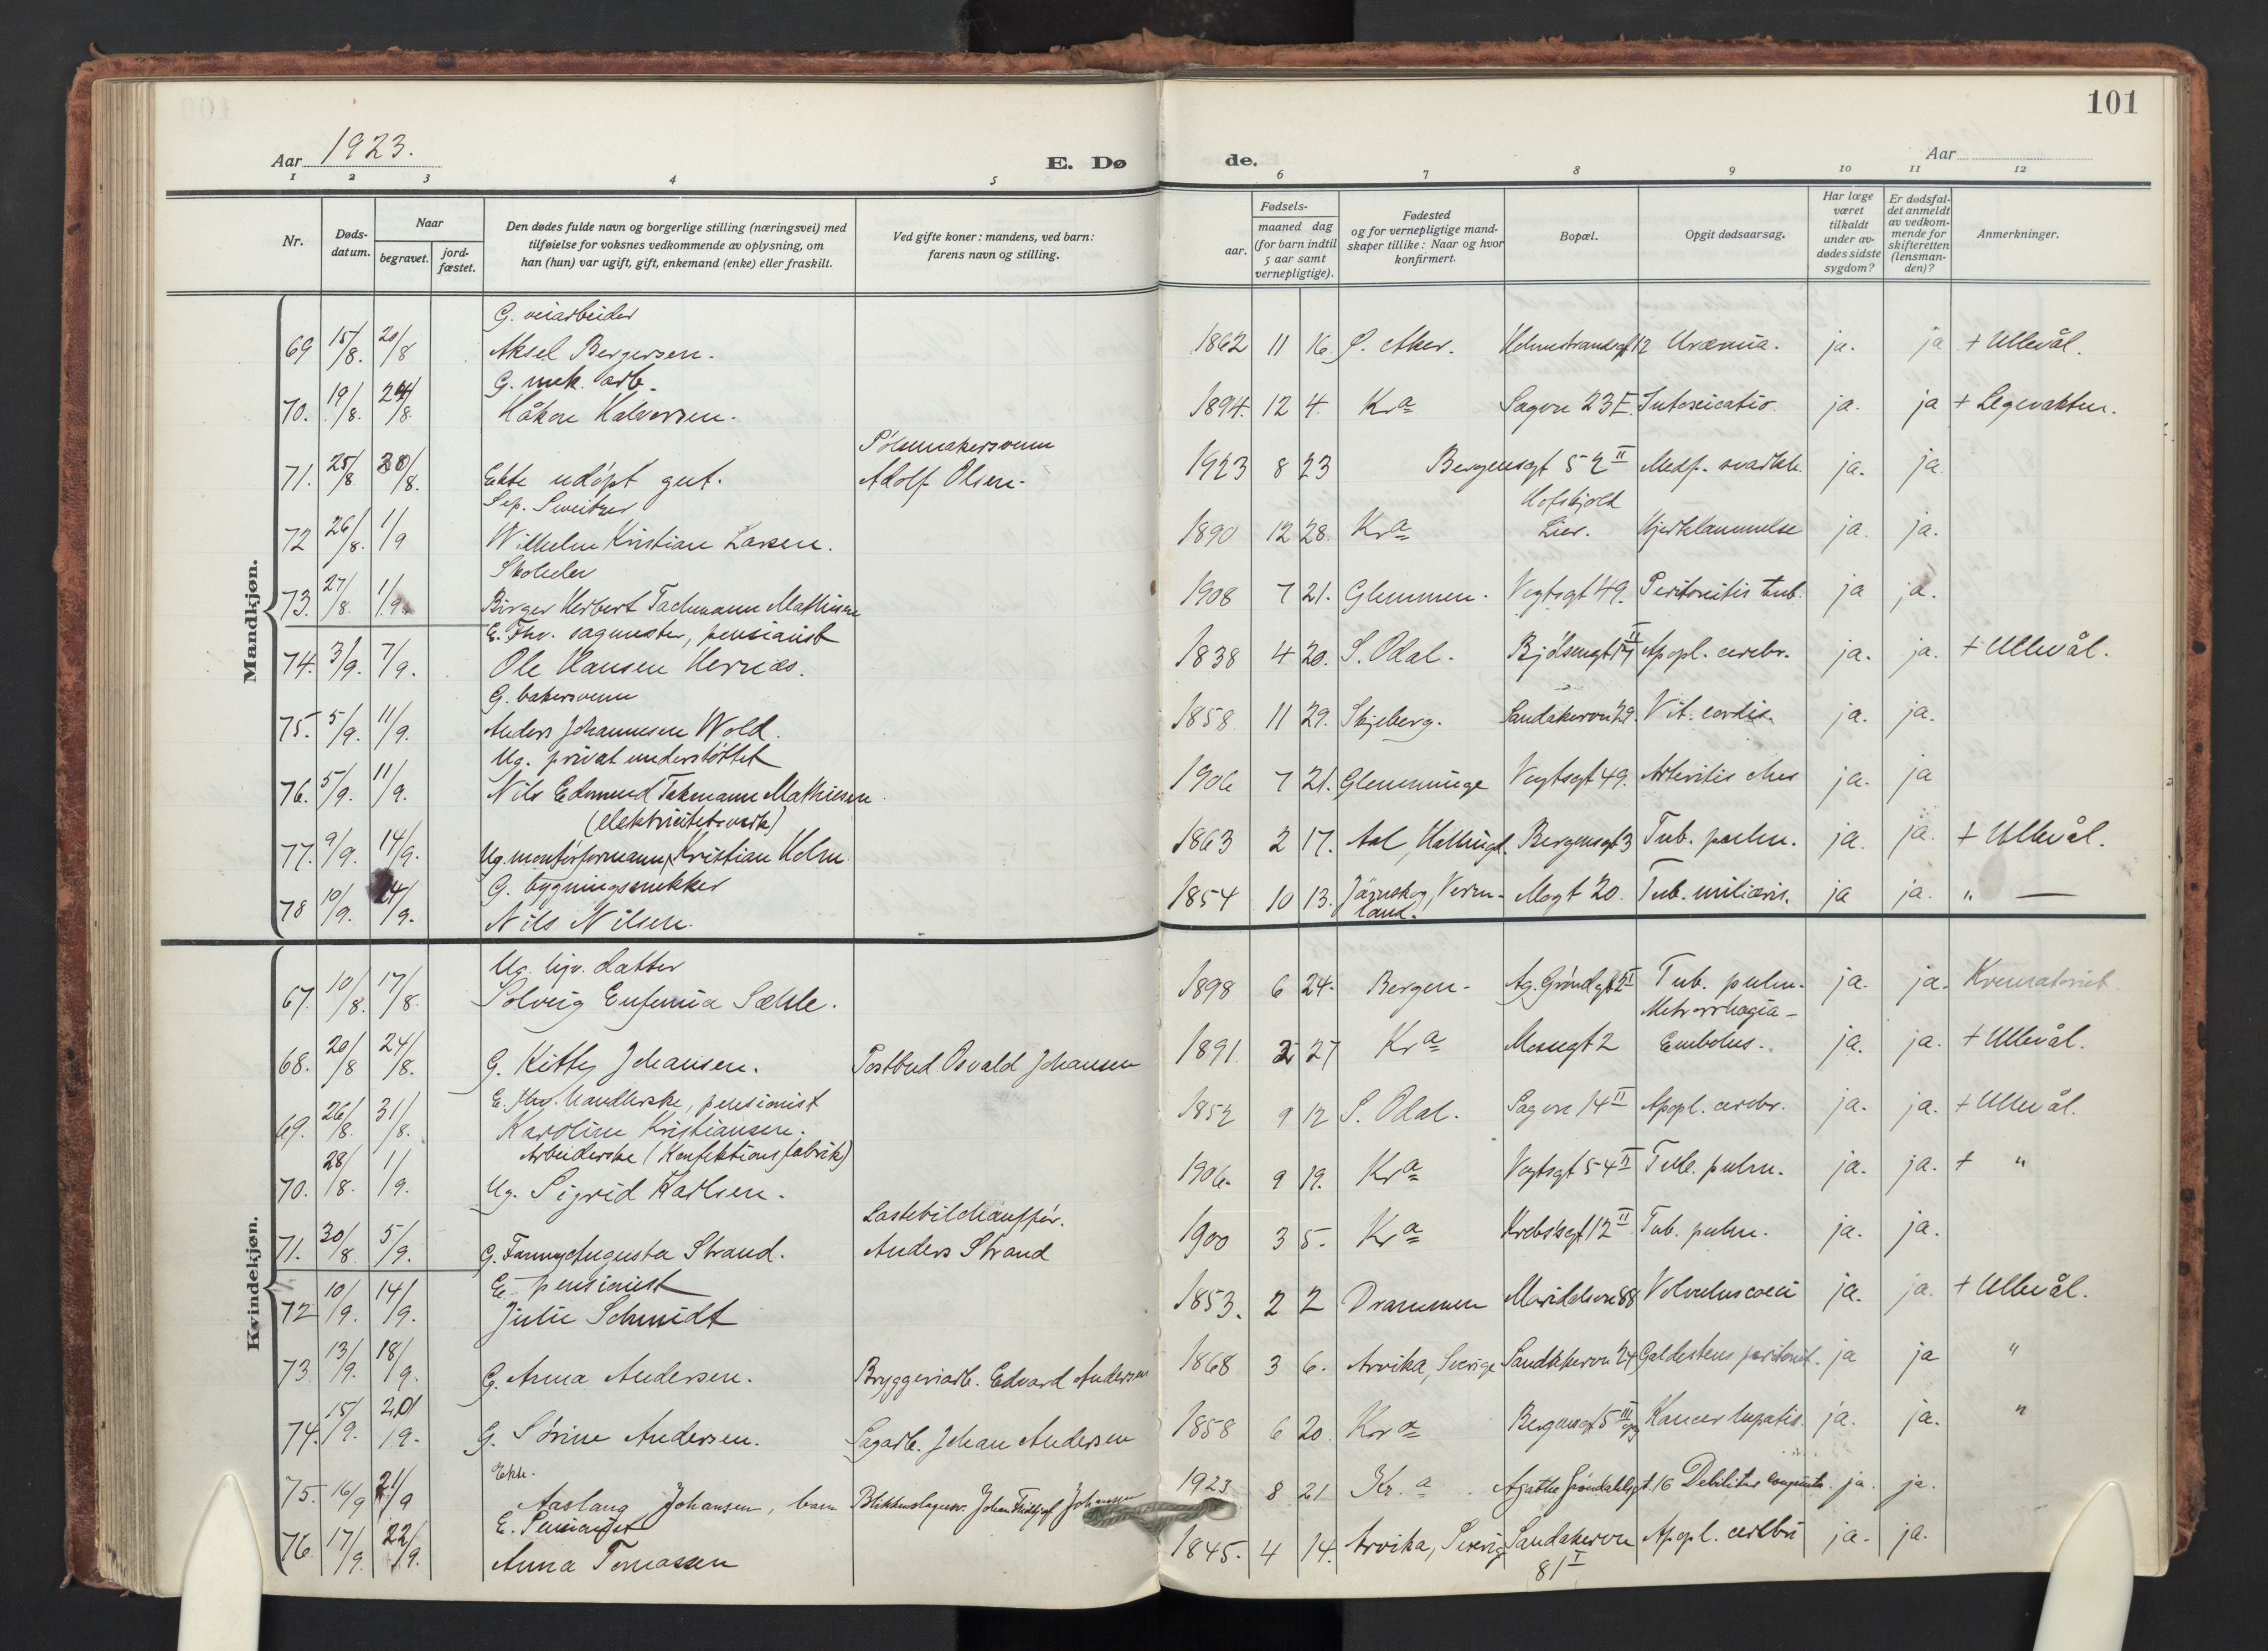 101
Aar 1923.
E. Dø
de.
Aar
1 2 3 4 5 6 7 8 9 10 11 12
Nr.
Døds-
datum.
Naar
begravet.
jord-
fæstet.
Den dødes fulde navn og borgerlige stilling (næringsvei) med
tilføielse for voksnes vedkommende av oplysning, om
han (hun) var ugift, gift, enkemand (enke) eller fraskilt.
Ved gifte koner: mandens, ved barn:
farens navn og stilling.
Fødsels-
aar.
maaned dag
(for barn indtil
5 aar samt
vernepligtige).
Fødested
og for vernepligtige mand-
skaper tillike: Naar og hvor
konfirmert.
Bopæl.
Opgit dødsaarsag.
Har læge
været
tilkaldt
under av-
dødes sidste
sygdom?
Er dødsfal-
det anmeldt
av vedkom-
mende for
skifteretten
(lensman-
den)?
Anmerkninger.
Mandkjøn.
G. veiarbeider
69 15/8. 20/8 Aksel Bergersen. 1862 11 16. Ø. Aker. Holmestrandsgt 12 Uræmia. ja. ja + Ullevål.
G. mek. arb.
70. 19/8. 24/8. Håkon Halvorsen. 1894. 12 4. Kra Sagvn 23 I. Intoxicatio. ja. ja + Legevakten.
Pølsemakersvenn
71. 25/8 30/8. Ekte udøpt gut. Adolf Olsen. 1923 8 23 Bergensgt 52 II Medf. svakh. ja. ja
Sep. Sveitzer
72 26/8. 1/9 Wilhelm Kristian Larsen. 1890 12 28. Kra Lier. Hjertelammelse ja. ja.
Skoleelev
73. 27/8. 1/9. Birger Herbert Tachmann Mathiesen 1908 7 21. Glemmen. Vogtsgt 49. Peritonitis tub. ja ja.
E. Fhv. sagmester, pensionist
74. 3/9. 7/9. Ole Hansen Hernæs. 1838 4 20. S. Odal. Apopl. cerebr. ja. ja. + Ullevål.
G. bakersvenn
75. 5/9. 11/9. Anders Johannesen Wold. 1858 11 29. Skjeberg. Sandakervn 29. Vit. cordis. ja. ja.
Ug. privat understøttet
76. 5/9. 11/9. Nils Edmund Takmann Mathiesen. 1906 7 21. Glemminge Vogtsgt 49. ja. ja
(elektricitetsverk)
77. 9/9. 14/9. Ug. montørformann, Kristian Holm. 1863 2 17. Aal, Hallingd. Bergensgt 3 Tub. pulm. ja. ja. + Ullevål.
G. bygningssnekker
78 10/9. 14/9. Nils Nilsen. 1854 10 13. Järnskog, Verm- Mogt 20. Tub. miliaris. ja ja. " —
land.
Kvindekjøn.
Ug. hjv. datter
67. 10/8. 17/8. Solveig Eufemia Sæhle. 1898 6 24. Bergen. Ag. Grøndgt 2 II Tub. pulm. ja. ja. Krematoriet.
Metrorrhagia -
68. 20/8 24/8. G. Kitty Johansen. Postbud Osvald Johansen 1891. 2 27 Kra Mosegt 2 Embolus. ja. ja. + Ullevål.
E. Fhv. handlerske, pensionist
69. 26/8. 31/8. Karoline Kristiansen. 1852 9 12 S. Odal. Sagvn 14 II Apopl. cerebr. ja. ja. + Ullevål.
Arbeiderske (Konfektionsfabrik)
70. 28/8. 1/9. Ug. Sigrid Karlsen. 1906. 9 19. Kra Vogtsgt 54 II Tub. pulm. ja. ja. + "
Lastebilchauffør.
71. 30/8 5/9. G. Fanny Augusta Strand. Anders Strand 1900 3 5. Kra Krebs'sgt 12 II Tub. pulm. ja. ja.
E. pensionist
72 10/9. 14/9. Julie Schmidt 1853. 2 2 Drammen Maridalsvn 88 Volvulus coeci ja. ja. + Ullevål.
73. 13/9. 18/9. G. Anna Andersen. Bryggeriarb. Edvard Andersen 1868 3 6. Arvika, Sverige Sandakervn 24 Galdestens peritonit. ja ja "
74. 15/9. 20/9. G. Sørine Andersen. Sagarb. Johan Andersen 1858 6 20. Kra Bergensgt 5 III Kancer hepatis. ja. ja. "
Ekte.
75. 16/9 21/9 Aaslaug Johansen, barn Blikkenslagersv. Johan Fridtjof Johansen 1923 8 21 Kr.a Agathe Grøndahlsgt. 16 Debilitas congenita. ja. ja.
E. Pensionist
76. 17/9. 22/9. Anna Tomassen 1845. 4 14. Arvika, Sverig Sandakervn Apopl. cerebri ja. ja.
81 I